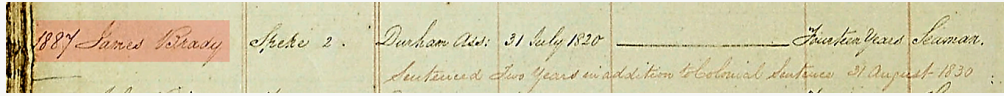 1887 James Brady Speke 2. Durham Ass: 31 July 1820 Fourteen Years Seaman.
Sentenced Two Years in addition to Colonial Sentence 31 August 1830